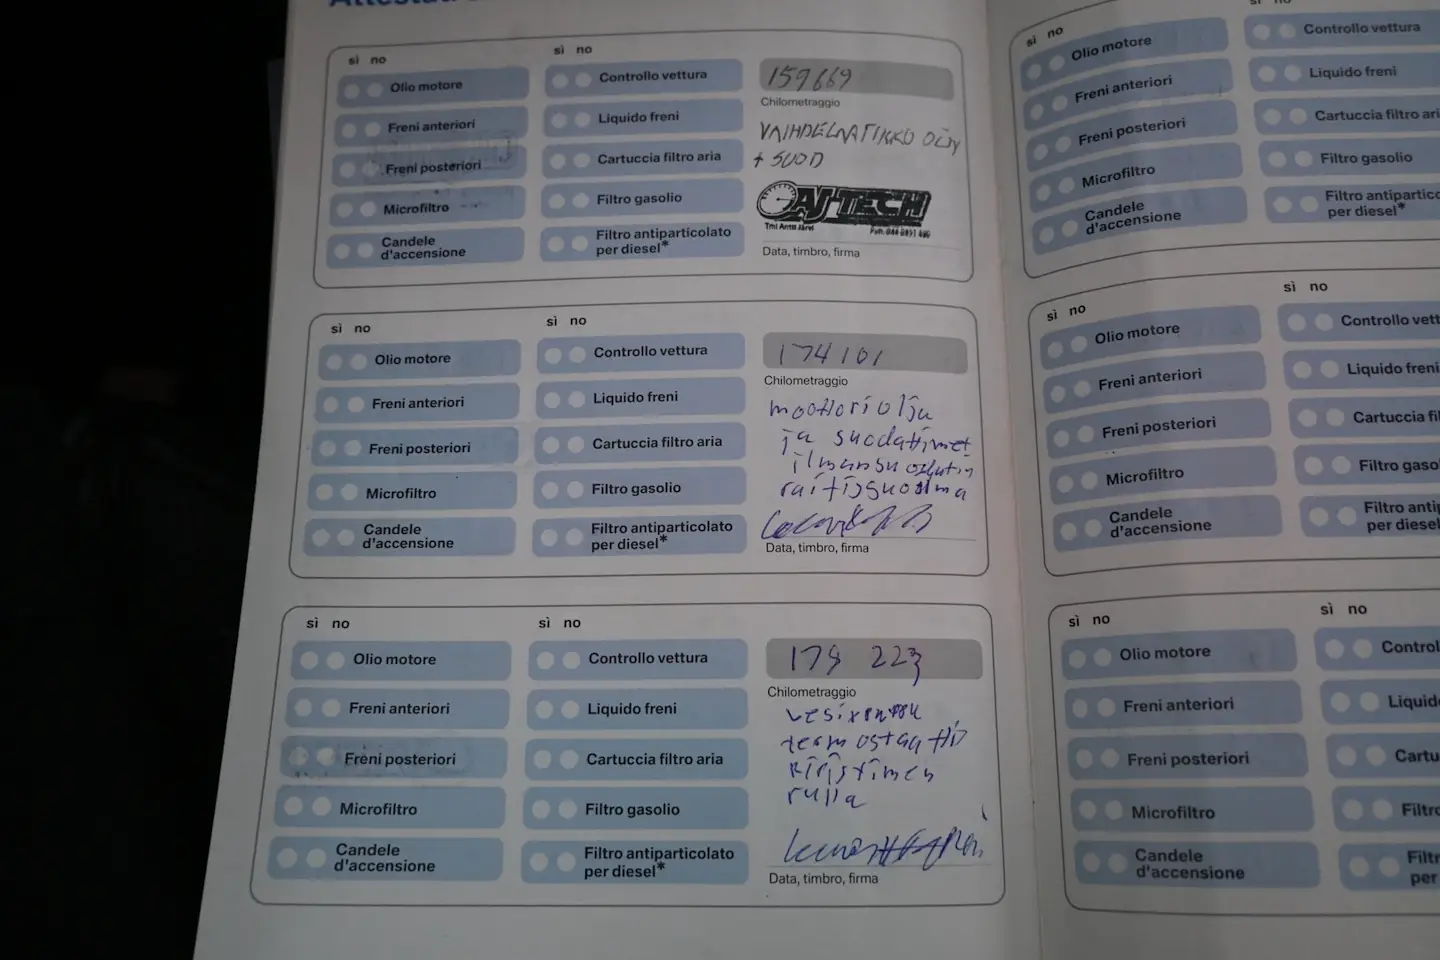 sì no
Olio motore
Freni anteriori
Freni posteriori
Microfiltro
Candele
d'accensione
sì no
Controllo vettura
Liquido freni
Cartuccia filtro aria
Filtro gasolio
Filtro antiparticolato
per diesel*
159669
Chilometraggio
VAIHDELAATIKKO ÖLJY
+ SUOD
AJ-TECH
Tmi Antti Järvi
Data, timbro, firma
sì no
Olio motore
Freni anteriori
Freni posteriori
Microfiltro
Candele
d'accensione
sì no
Controllo vettura
Liquido freni
Cartuccia filtro aria
Filtro gasolio
Filtro antiparticolato
per diesel*
174101
Chilometraggio
moottoriolja
ja suodattimet
ilmansuodatin
raitisuodma
Data, timbro, firma
sì no
Olio motore
Freni anteriori
Freni posteriori
Microfiltro
Candele
d'accensione
sì no
Controllo vettura
Liquido freni
Cartuccia filtro aria
Filtro gasolio
Filtro antiparticolato
per diesel*
178 223
Chilometraggio
termostaatti
kiristimen
rulla
Data, timbro, firma
sì no
Olio motore
Freni anteriori
Freni posteriori
Microfiltro
Candele
d'accensione
sì no
Controllo vettura
Liquido freni
Cartuccia filtro ari
Filtro gasolio
Filtro antipartico
per diesel*
sì no
Olio motore
Freni anteriori
Freni posteriori
Microfiltro
Candele
d'accensione
sì no
Controllo vett
Liquido freni
Cartuccia fil
Filtro gaso
Filtro anti
per diesel
sì no
Olio motore
Freni anteriori
Freni posteriori
Microfiltro
Candele
d'accensione
sì no
Control
Liquid
Cartu
Filtro
Filtr
per